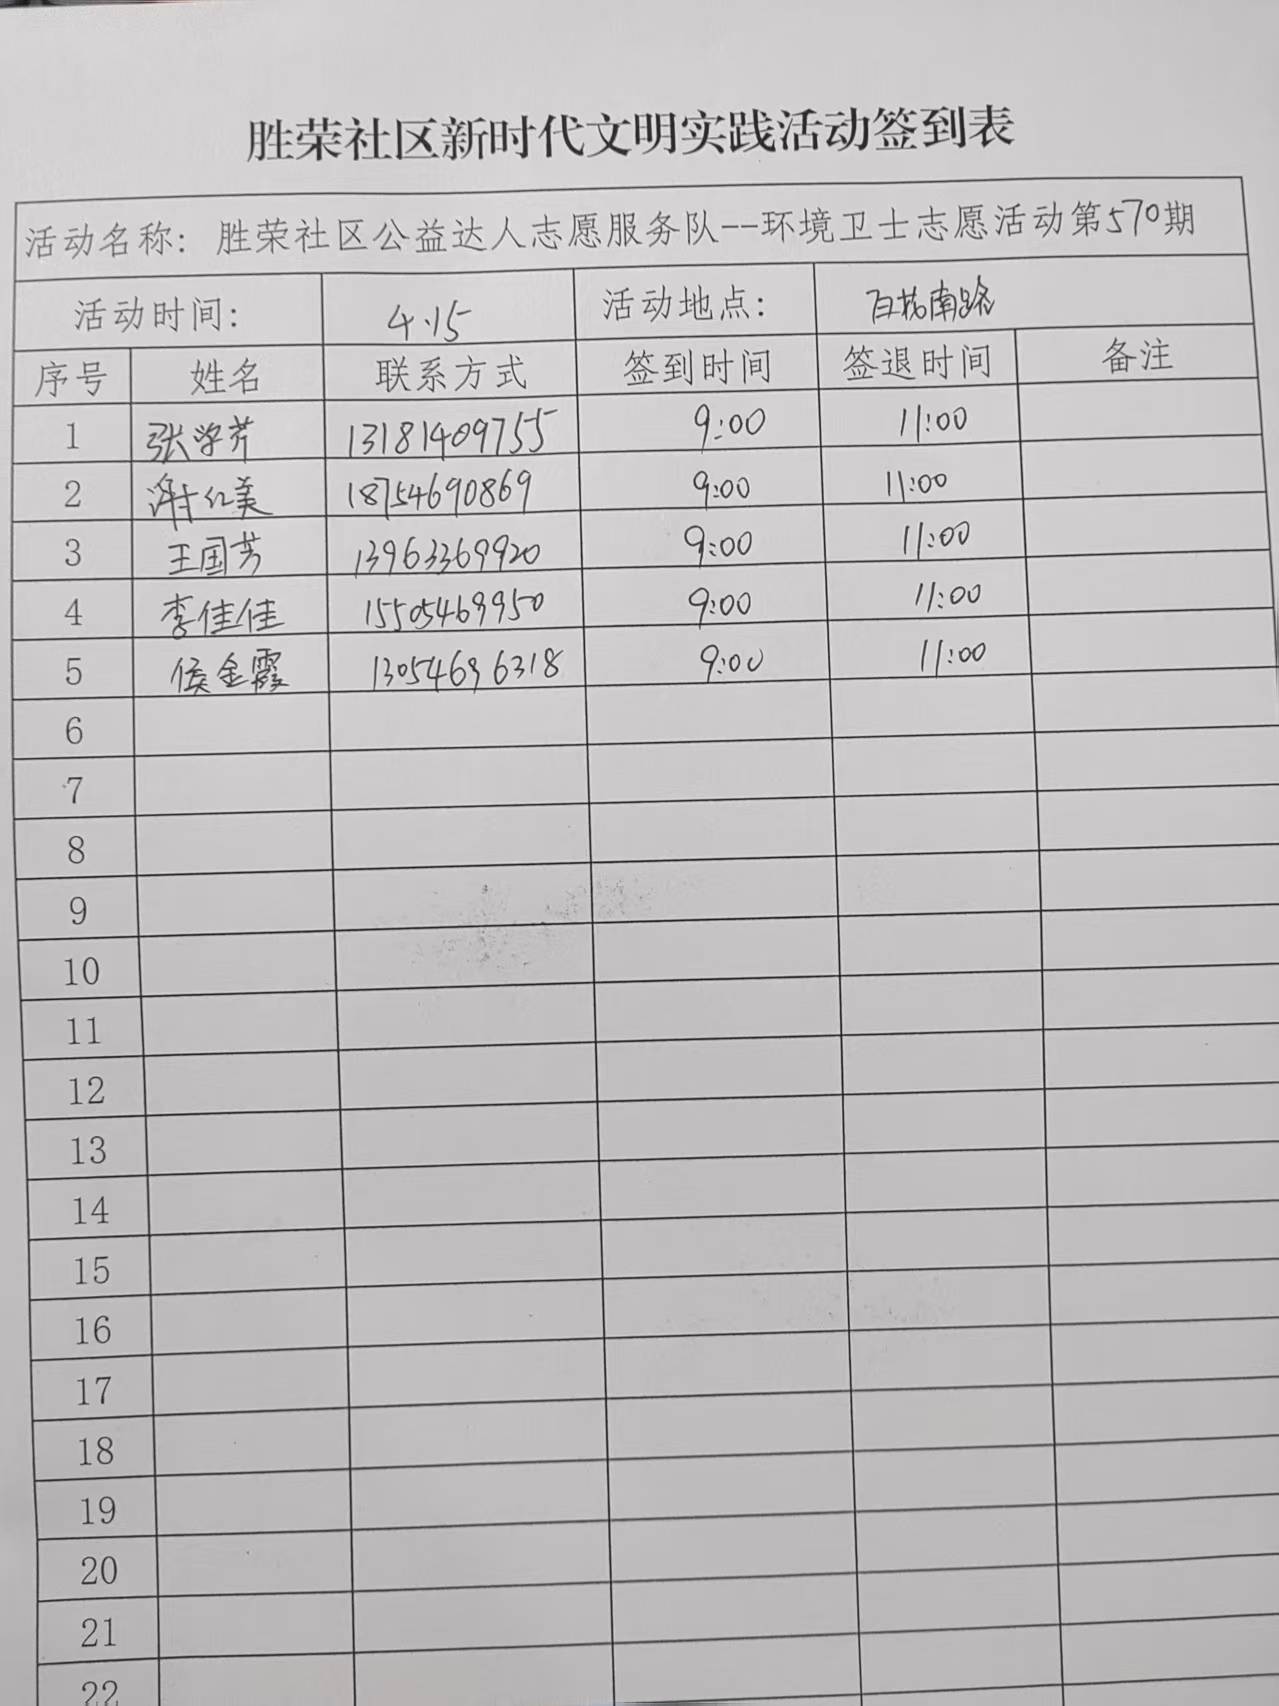 胜荣社区新时代文明实践活动签到表
活动名称: 胜荣社区公益达人志愿服务队--环境卫士志愿活动第570期
活动时间: 4.15 活动地点: 南路
序号 姓名 联系方式 签到时间 签退时间 备注
1 张学芹 13181409755 9:00 11:00
2 谢红美 18754690869 9:00 11:00
3 王国芳 13963369920 9:00 11:00
4 李佳佳 15505469950 9:00 11:00
5 侯金霞 13054696318 9:00 11:00
6
7
8
9
10
11
12
13
14
15
16
17
18
19
20
21
22